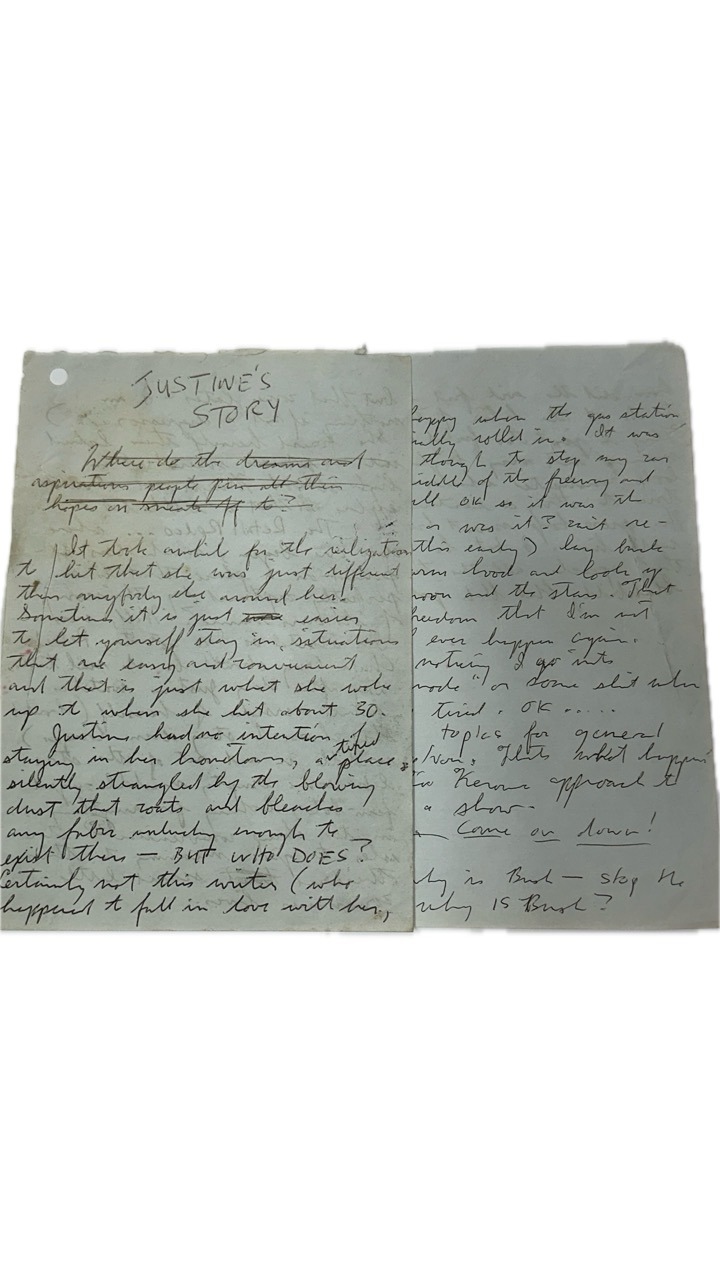 JUSTINE'S
STORY
Where do the dreams and
aspirations people pin all their
hopes on sneak off to?
It took awhile for the realization
to hit that she was just different
than anybody else around her.
Sometimes it is just easier
to let yourself stay in situations
that are easy and convenient
and that is just what she woke
up to when she hit about 30.
Justine had no intention of
staying in her hometown, a tired place
silently strangled by the blowing
dust that coats and bleaches
any fabric unlucky enough to
exist there — BUT WHO DOES?
Certainly not this writer (who
happened to fall in love with her,
happy when the gas station
rolled in. It was
though to stop my car
of the freeway and
OK so it was the
or was it?
this early) lay back
hood and look up
moon and the stars. That
freedom that I'm not
ever happen again.
nothing I go into
mode" or some shit when
tired. OK .....
topics for general
Thats what happens
approach to
a show.
Come on down!
is Bush — skip the
why IS Bush?